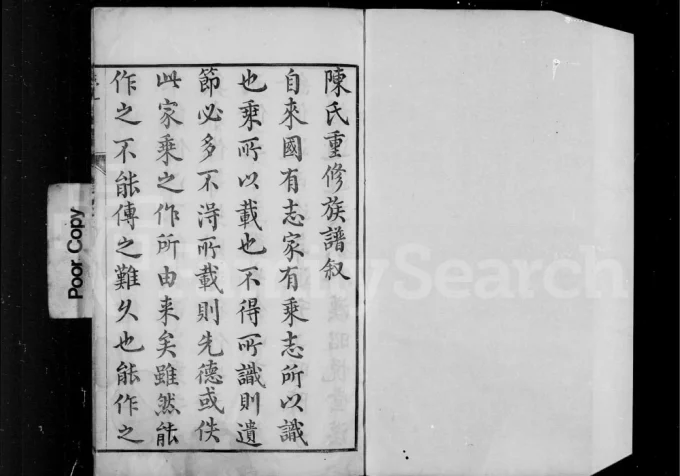 陳氏重修族譜叙
自來國有志家有乘志所以識
也乘所以載也不得所識則遺
節必多不得所載則先德或佚
此家乘之作所由来矣雖然能
作之不能傳之難久也能作之
Poor Copy
FamilySearch